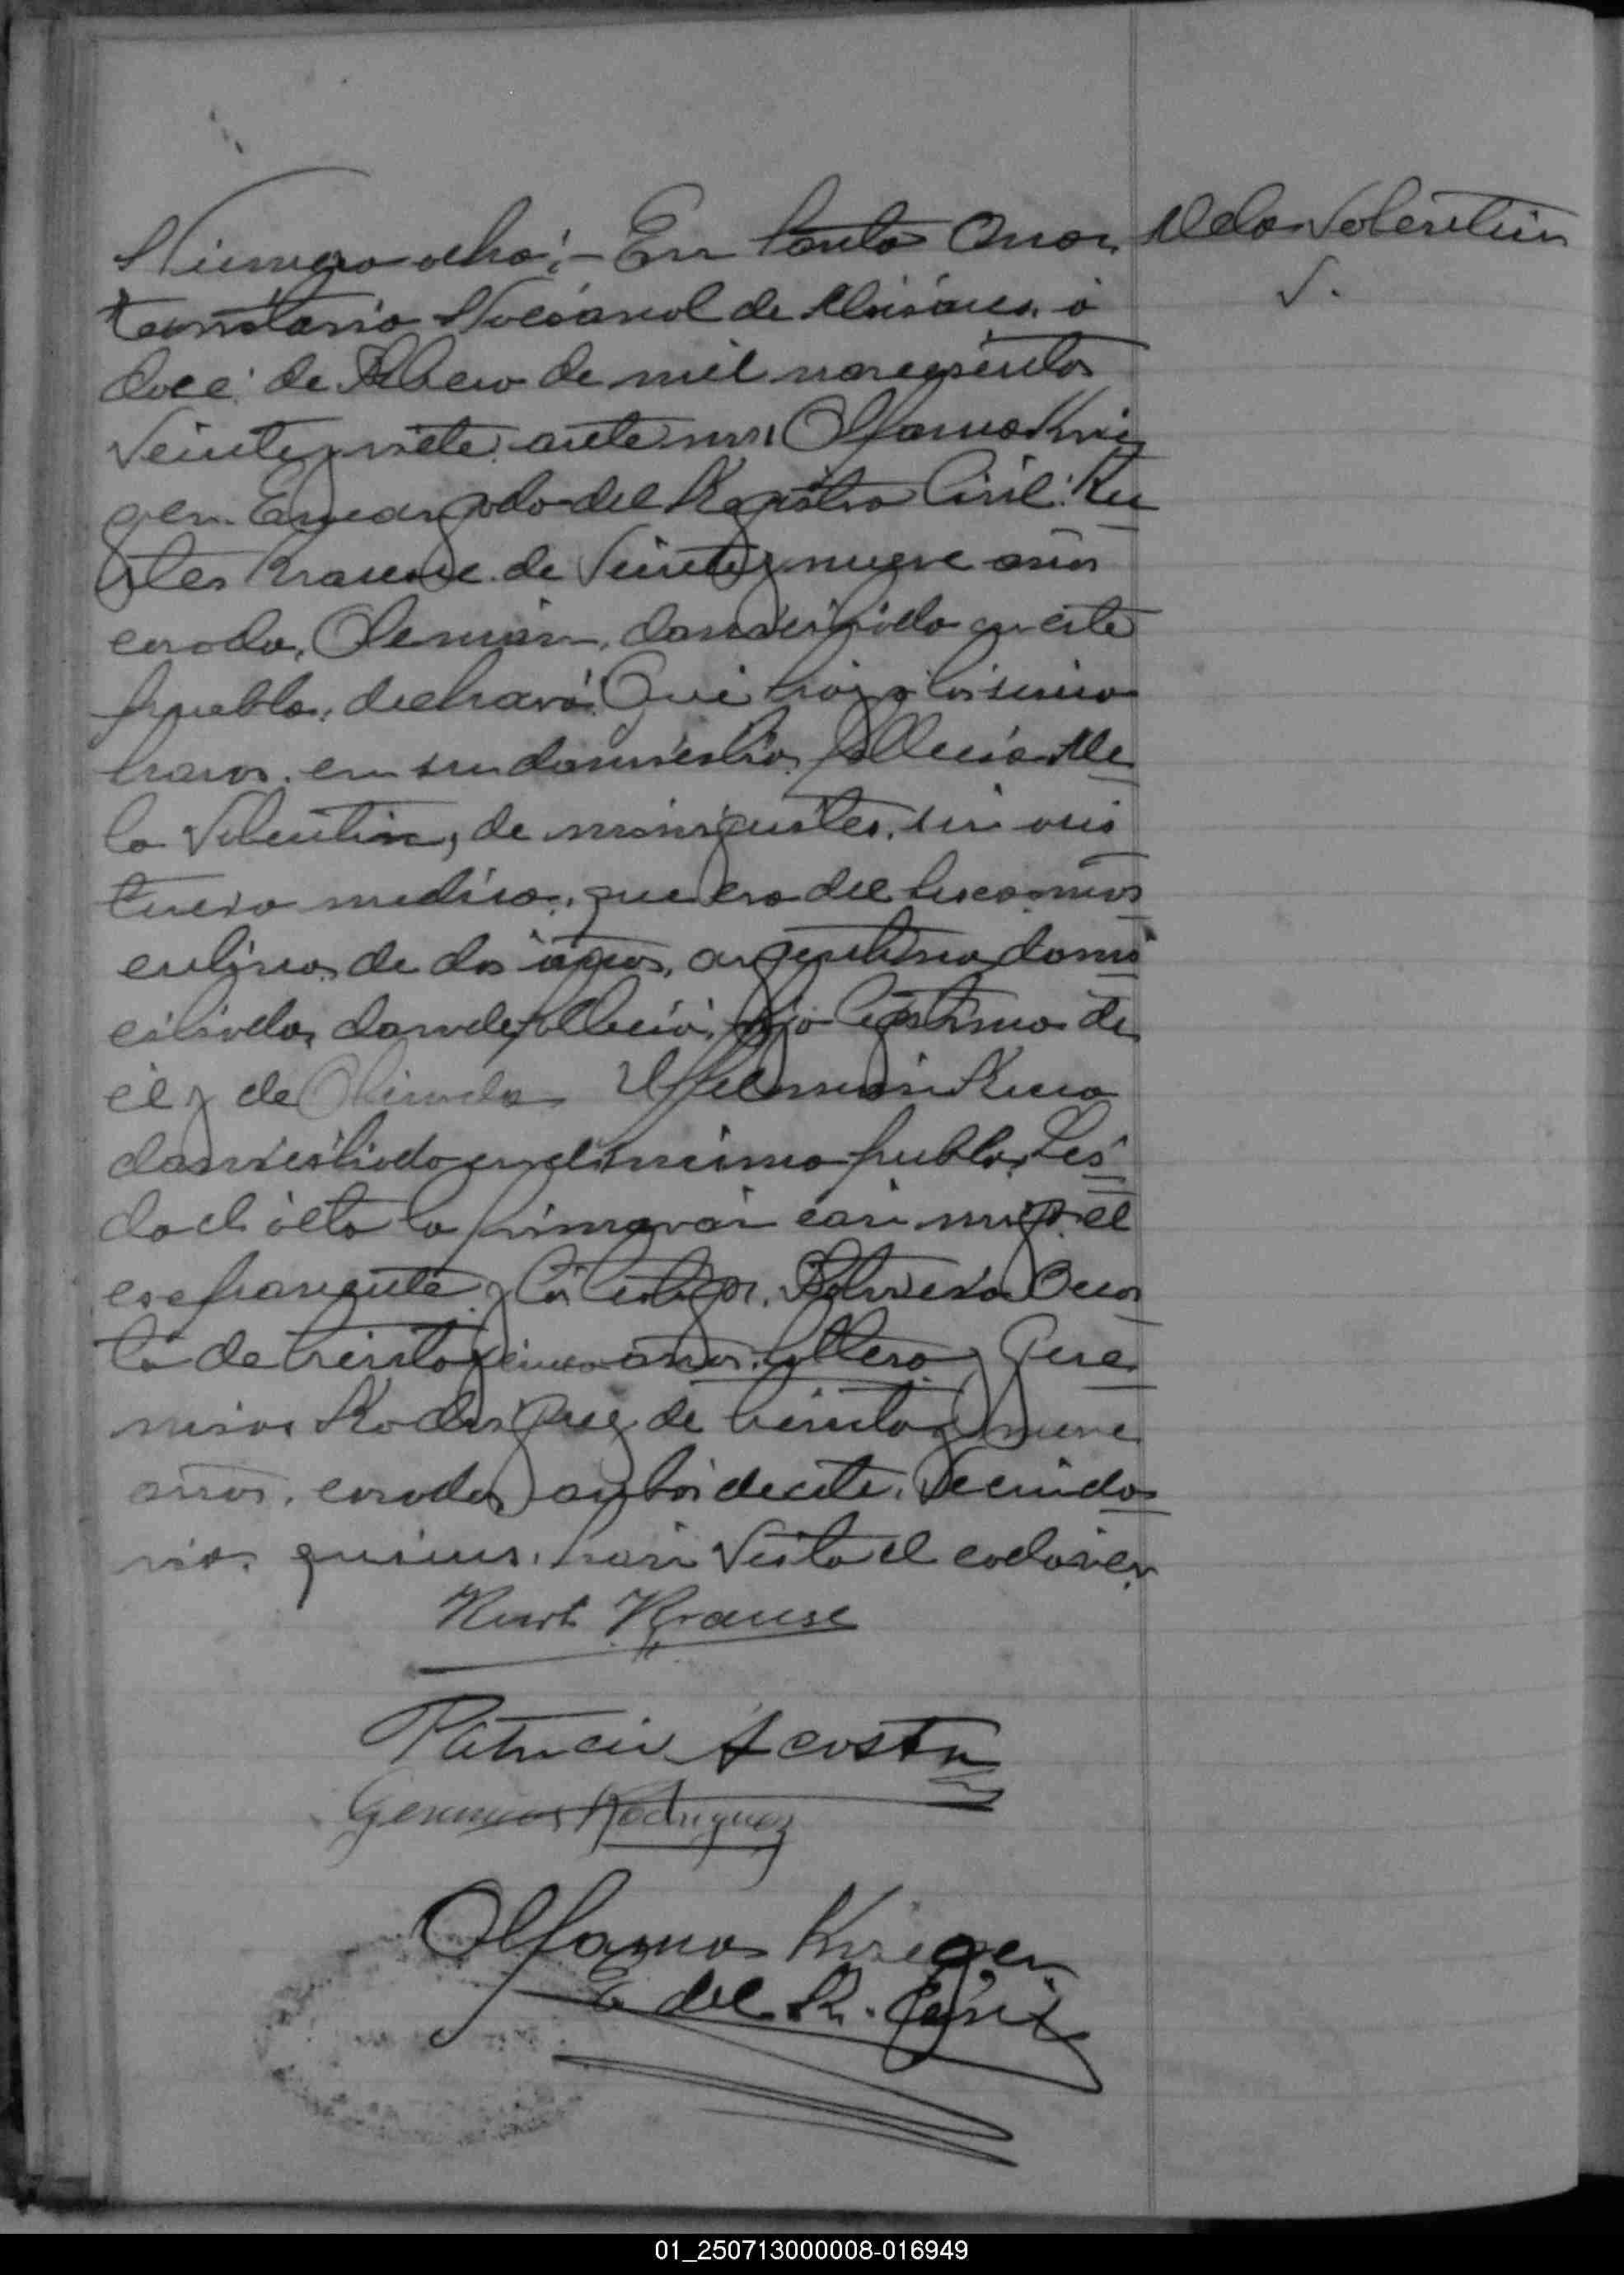 Número ocho:- En Santa Ana,
territorio Nacional de Misiones, á
doce de Febrero de mil novecientos
veinte y siete, ante mí, Krie
ger, Encargado del Registro Civil:
Krause de veinte y nueve años
casado, Alemán, domiciliado en este
pueblo, declaró: Que hoy a las
horas, en su domicilio, falleció
la Valentin, de meningitis, sin asis
tencia medica, que era del sexo mas
culino, de dos años, argentino, domi
ciliado, donde falleció, hijo legítimo de
él y de
domiciliado en el mismo pueblo. Leí
da el acta la firmaron con migo el
exponente y los testigos, Patricio Acos
ta de treinta y cinco años, soltero, y Gere
mias Rodriguez de treinta y nueve
años, casado, ambos de este vecinda
rio, quienes han visto el cadáver.
Kurt Krause
Patricio Acosta
Geremias Rodriguez
Krieger
E. del R. Civil
Valentin
01_250713000008-016949